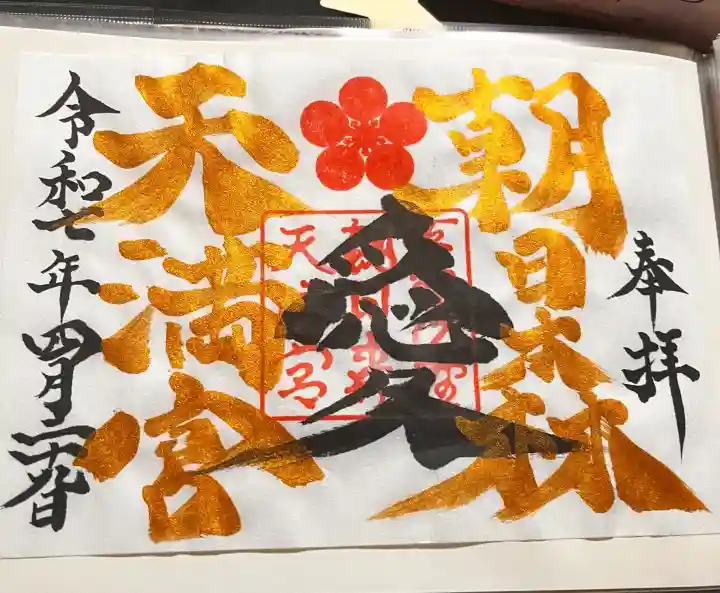 奉拝
朝日森
天満宮
愛
令和七年四月二十九日